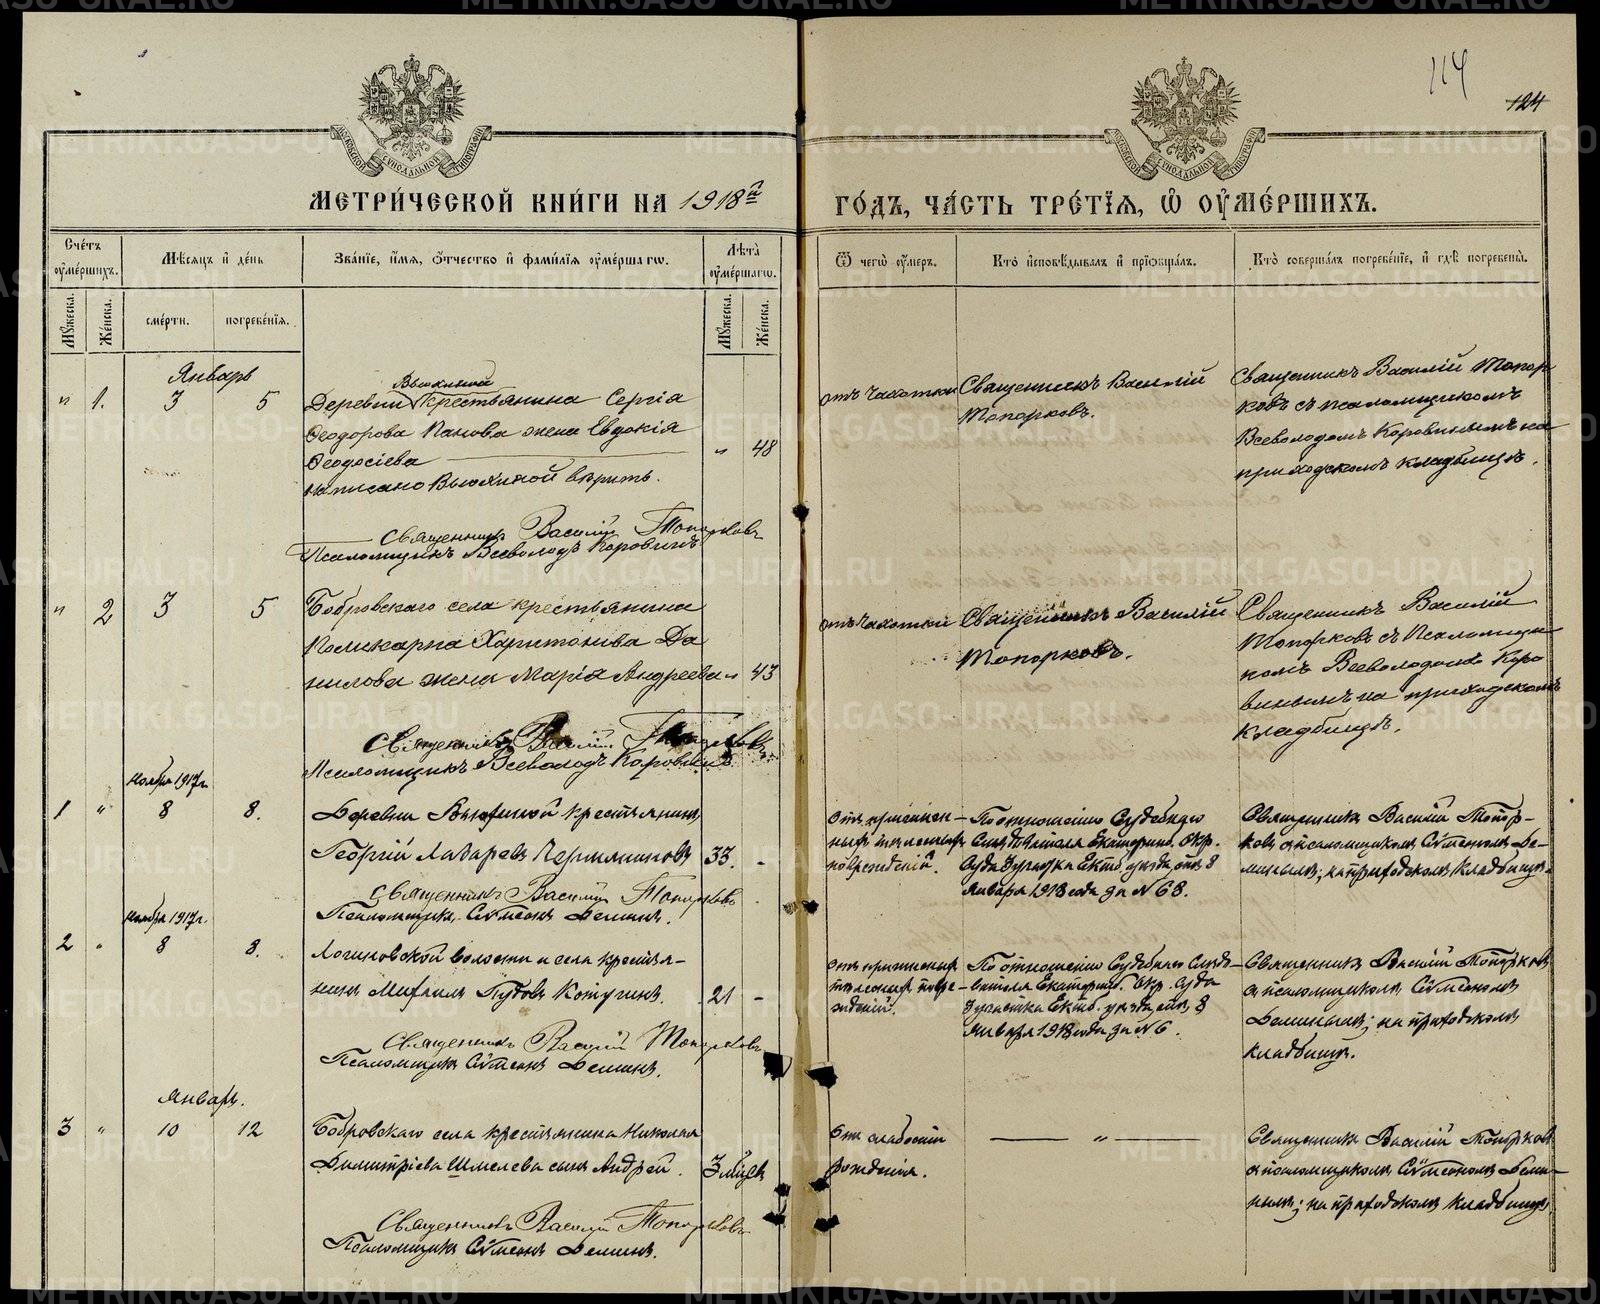 114
124
МЕТРИ́ЧЕСКОЙ КНИ́ГИ НА 1918й
ГО́ДЪ, ЧА́СТЬ ТРЕ́ТЇѦ, Ѽ ОУМЕ́РШИХЪ.
Сче́тъ оумє́ршихъ.
Мѣ́сѧцъ и де́нь
Зва́нїе, и́мѧ, ѻ́тчество и фами́лїѧ оумє́ршагѡ.
Лѣта̀ оумє́ршагѡ.
Ѿ чегѡ̀ оу́меръ.
Кто̀ и҆сповѣ́дывалъ и҆ прїѡбща́лъ.
Кто̀ соверша́лъ погребе́нїе, и҆ гдѣ̀ погребены̀.
Мꙋ́жеска.
Же́нска.
сме́рти.
погребе́нїѧ.
Мꙋ́жеска.
Же́нска.
Январь
" 1. 3 5
Вьюхиной
Деревни Крестьянина Сергія
Ѳеодорова Панова жена Евдокія
Ѳеодосіева " 48
написано Вьюхиной вѣрить.
Священникъ Василій Топорковъ
Псаломщикъ Всеволодъ Коровинъ
отъ чахотки
Священникъ Василій
Топорковъ.
Священникъ Василій Топор
ковъ съ псаломщикомъ
Всеволодомъ Коровинымъ на
приходскомъ кладбищѣ.
" 2 3 5
Бобровскаго села крестьянина
Поликарпа Харитонова Да
нилова жена Марія Андреева " 43
Священникъ Василій Топорковъ
Псаломщикъ Всеволодъ Коровинъ
отъ чахотки
Священникъ Василій
Топорковъ.
Священникъ Василій
Топорковъ съ Псаломщи
комъ Всеволодомъ Коро
винымъ на приходскомъ
кладбищѣ.
Ноября 1917г.
1 " 8 8.
Деревни Вьюхиной крестьянинъ
Георгій Лазаревъ Чермяниновъ 33. -
Священникъ Василій Топорковъ
Псаломщикъ Сѵмеонъ Деминъ.
поврежденій.
По отношенію Судебнаго
Слѣдователя Екатеринб. Окр.
Суда участка Екатб. уѣзда отъ 8
Января 1918 года за № 68.
Священникъ Василій Топор-
ковъ съ псаломщикомъ Сѵмеономъ Де-
минымъ; на приходскомъ кладбищѣ.
Ноября 1917г.
2 " 8 8.
Логиновской волости и села крестья-
нинъ Михаилъ Пудовъ Котугинъ. 21 -
Священникъ Василій Топорковъ
Псаломщикъ Сѵмеонъ Деминъ.
По отношенію Судебнаго Слѣдо-
вателя Екатеринб. Окр. Суда
участка Екатб. уѣзда отъ 8
Января 1918 года за № 6.
Священникъ Василій Топорковъ
съ псаломщикомъ Сѵмеономъ
Деминымъ; на приходскомъ
кладбищѣ.
Январь.
3 " 10 12
Бобровскаго села крестьянина Николая
Димитріева Шмелева сынъ Андрей. 3 мѣсяц
Священникъ Василій Топорковъ
Псаломщикъ Сѵмеонъ Деминъ.
Отъ слабости
рожденія.
"
Священникъ Василій Топорковъ
съ псаломщикомъ Сѵмеономъ Деми-
нымъ; на приходскомъ кладбищѣ
METRIKI.GASO-URAL.RU